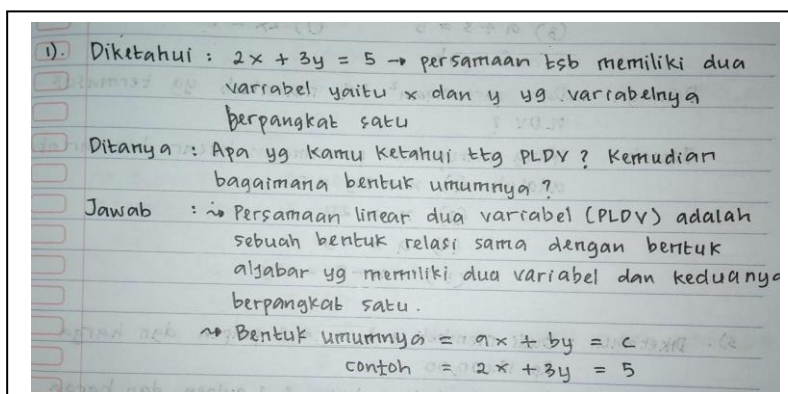 1). Diketahui : 2x + 3y = 5 → persamaan tsb memiliki dua
variabel yaitu x dan y yg variabelnya
berpangkat satu
Ditanya : Apa yg kamu ketahui ttg PLDV? Kemudian
bagaimana bentuk umumnya?
Jawab : ⇝ Persamaan linear dua variabel (PLDV) adalah
sebuah bentuk relasi sama dengan bentuk
aljabar yg memiliki dua variabel dan keduanya
berpangkat satu.
⇝ Bentuk umumnya = ax + by = c
contoh = 2x + 3y = 5